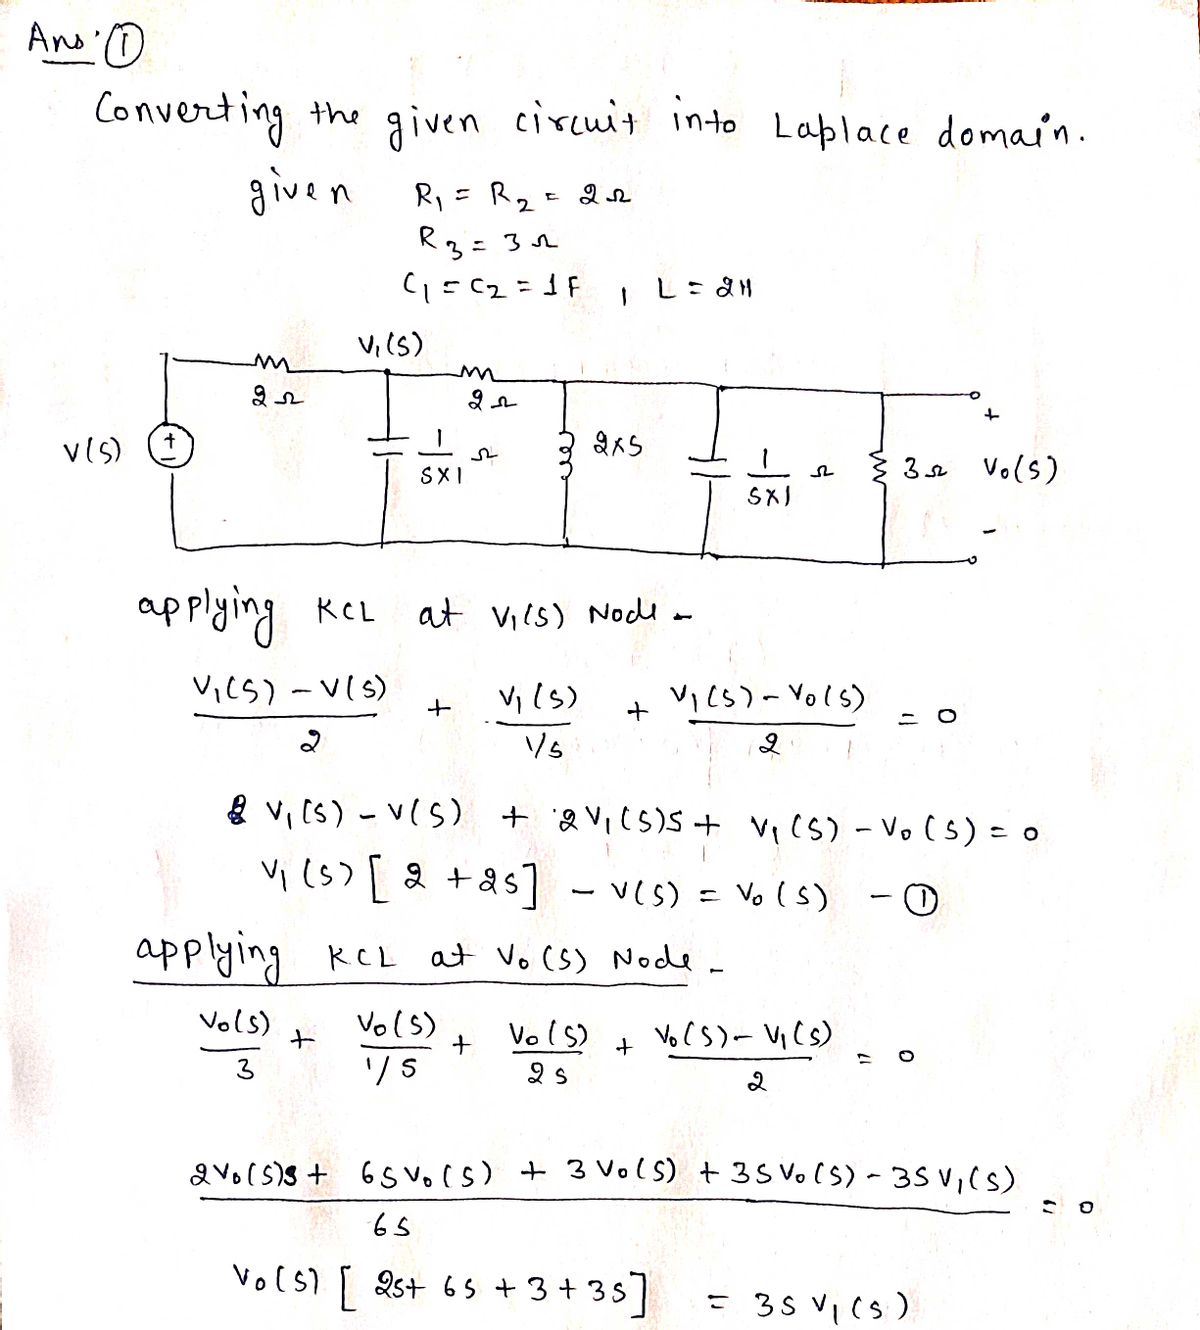 Ans: ①
Converting the given circuit into Laplace domain.
given R₁ = R₂ = 2Ω
R₃ = 3Ω
C₁ = C₂ = 1F , L = 2H
V₁(s)
2Ω
2Ω
V(s)
+
-
1/(S×1) Ω
2×S
1/(S×1) Ω
3Ω
+
V₀(s)
-
applying KCL at V₁(s) Node -
(V₁(s) - V(s))/2 + V₁(s)/(1/s) + (V₁(s) - V₀(s))/2 = 0
V₁(s) - V(s) + 2V₁(s)S + V₁(s) - V₀(s) = 0
V₁(s) [ 2 + 2s ] - V(s) = V₀(s) - ①
applying KCL at V₀(s) Node -
V₀(s)/3 + V₀(s)/(1/s) + V₀(s)/2s + (V₀(s) - V₁(s))/2 = 0
(2V₀(s)s + 6sV₀(s) + 3V₀(s) + 3sV₀(s) - 3sV₁(s))/6s = 0
V₀(s) [ 2s + 6s + 3 + 3s ] = 3s V₁(s)